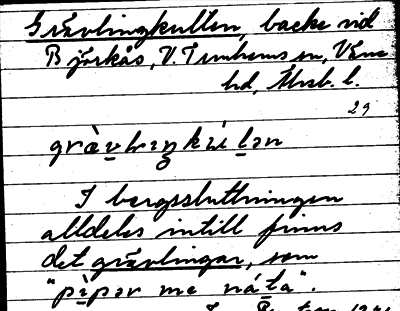 Grävlingkullen, backe vid
Björkås, V. Tunhems sn, Väne
hd, Älvsb. l.
29
I bergssluttningen
alldeles intill finns
det grävlingar, som
"pìpər me náta".